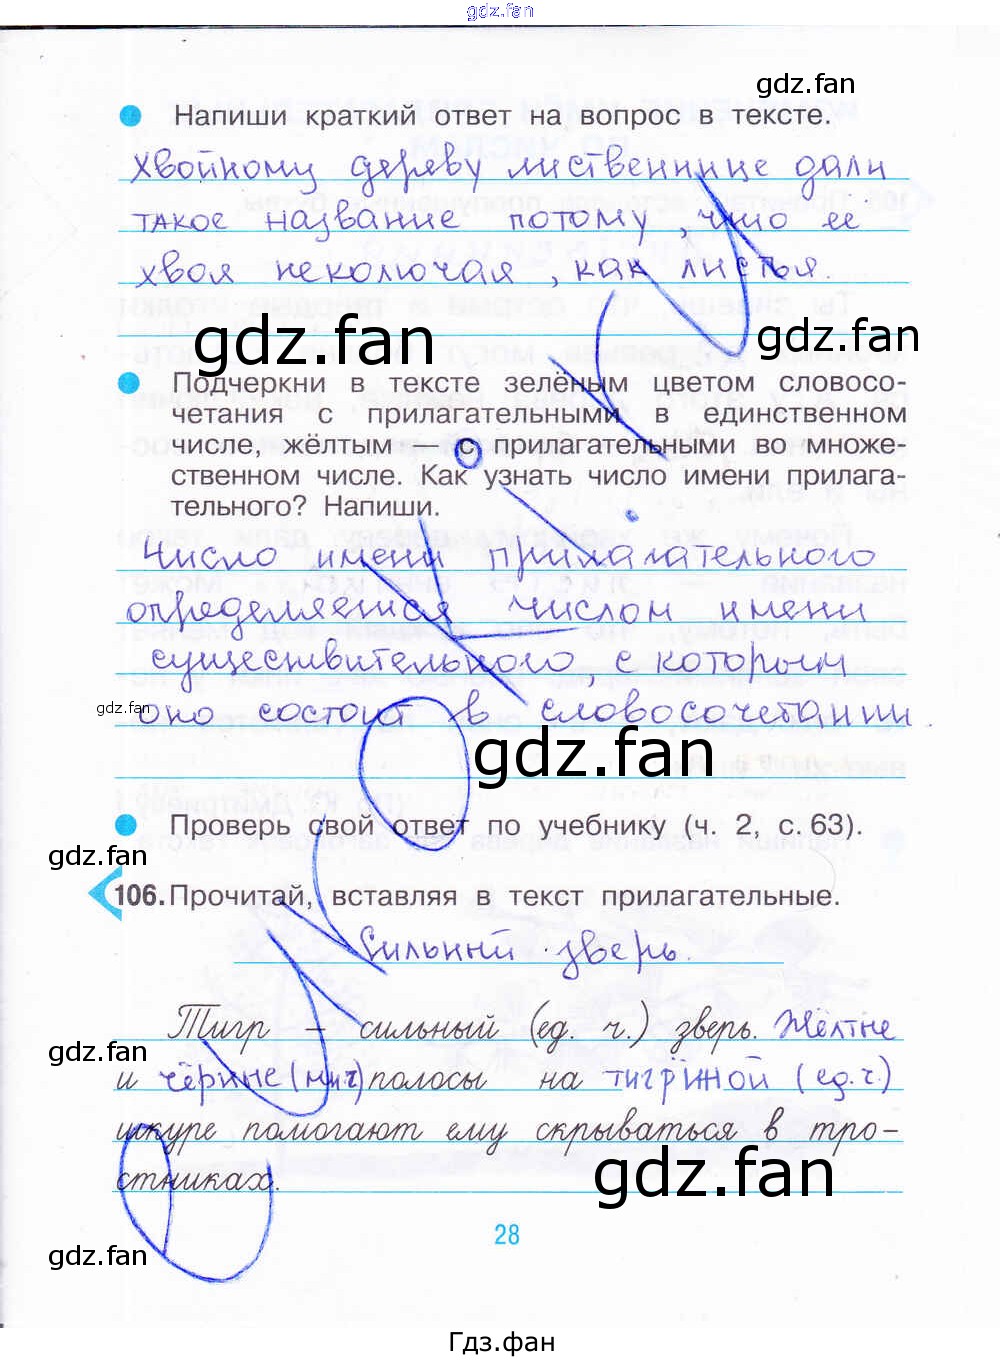 gdz.fan
gdz.fan
Напиши краткий ответ на вопрос в тексте.
Хвойному дереву лиственнице дали
такое название потому, что ее
хвоя неколючая, как листья.
gdz.fan
gdz.fan
Подчеркни в тексте зелёным цветом словосо-
четания с прилагательными в единственном
числе, жёлтым — с прилагательными во множе-
ственном числе. Как узнать число имени прилага-
тельного? Напиши.
Число имени прилагательного
определяется числом имени
существительного, с которым
gdz.fan
оно состоит в словосочетании
gdz.fan
Проверь свой ответ по учебнику (ч. 2, с. 63).
gdz.fan
106. Прочитай, вставляя в текст прилагательные.
Сильный зверь.
Тигр – сильный (ед. ч.) зверь. Жёлтые
gdz.fan
и чёрные (мн.ч) полосы на тигриной (ед.ч.)
шкуре помогают ему скрываться в тро-
стниках.
gdz.fan
28
gdz.fan
Гдз.фан